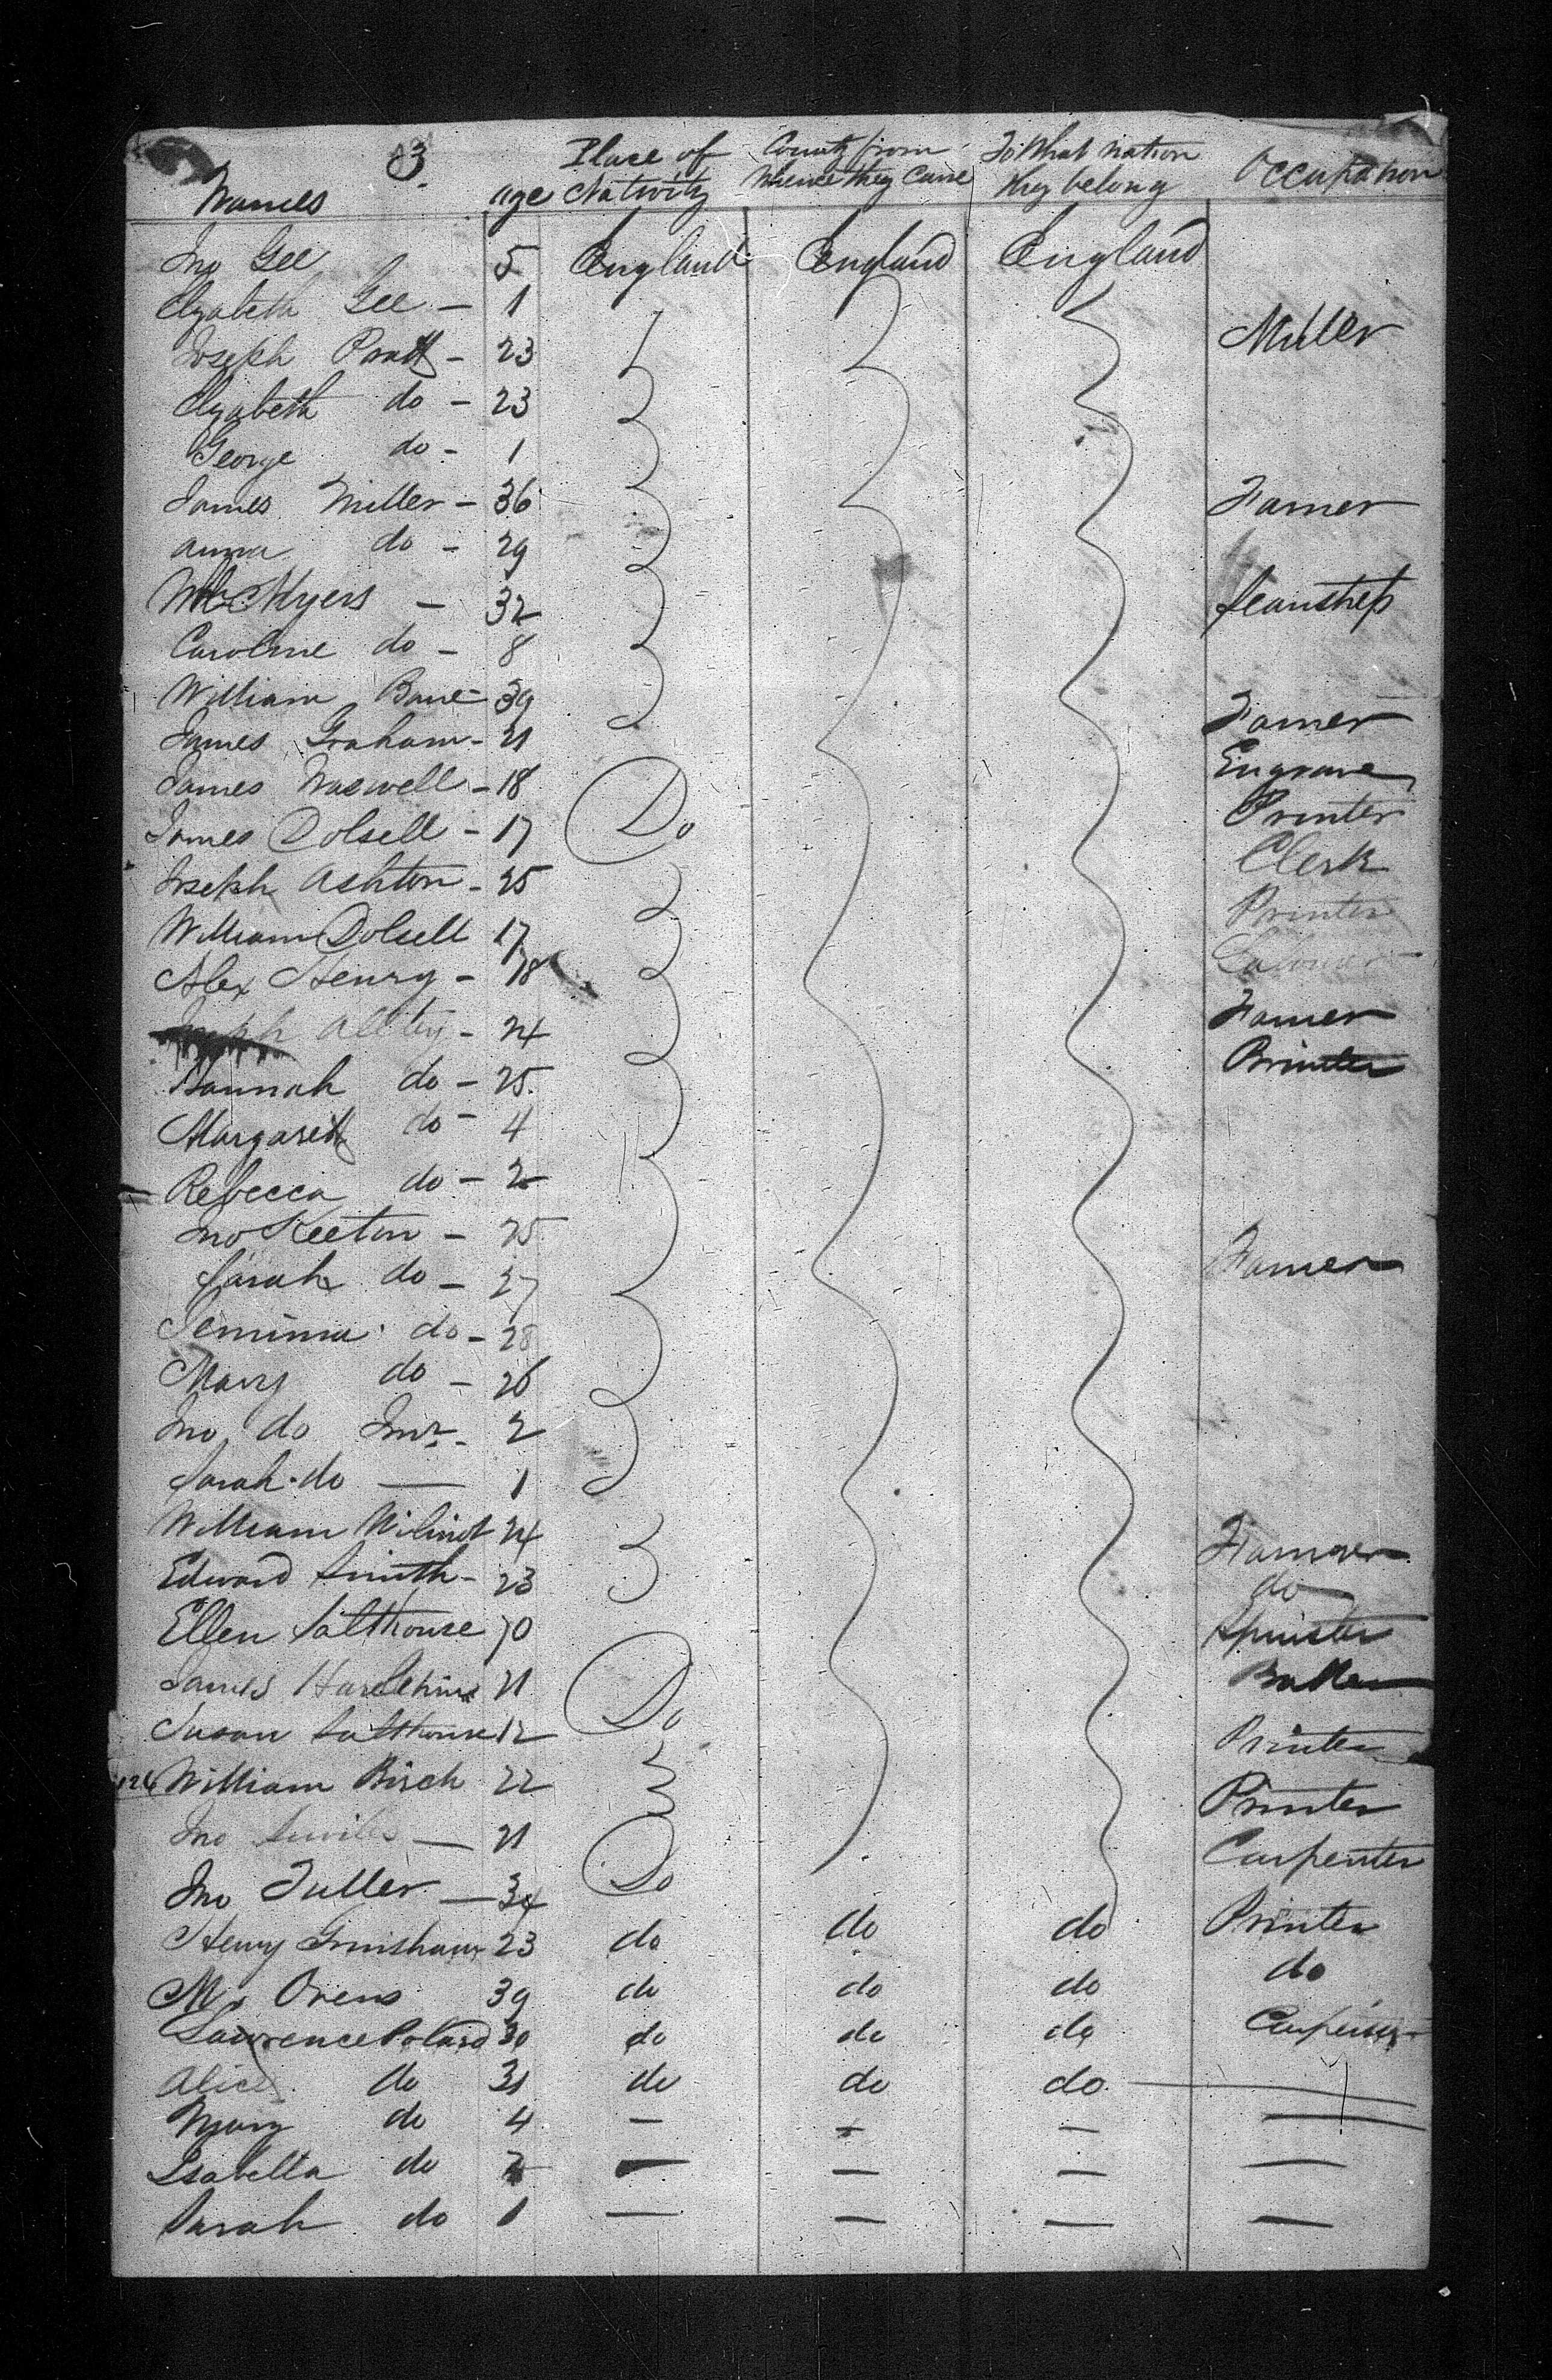 3
Names age Place of Nativity County from Whence they Came To What nation they belong Occupation
Jno Gee 5 England England England
Elizabeth Gee — 1
Joseph Pratt — 23 Miller
Elizabeth do — 23
George do — 1
James Miller — 36 Farmer
Anna do — 29
Wm Myers — 32
Caroline do — 8
William Bane — 39 Farmer
James Graham — 21 Engraver
James Maxwell — 18 Do Printer
James Dolsell — 17 Clerk
Joseph Ashton — 25 Printer
William Dolsell 17 Labourer
Alex Henry — 18 Farmer
24 Printer
Hannah do — 25
Margaret do — 4
Rebecca do — 2
Jno Keeton — 25 Farmer
Sarah do — 27
Jemima do — 28
Mary do — 26
Jno do Junr — 2
Sarah do — 1
William Wilmot 24 Farmer
Edward Smith — 23 do
Ellen Salthouse 70 Spinster
James 21 Do
Susan Salthouse 12 Printer
124 William Birch 22 Printer
Jno — 21 Do Carpenter
Jno Fuller — 34 Printer
Henry Grimshaw 23 do do do do
Owens 39 do do do
Lawrence Polard 30 do do do Carpenter
Alice do 31 do do do —
Mary do 4 — — — —
Isabella do 2 — — — —
Sarah do 1 — — — —